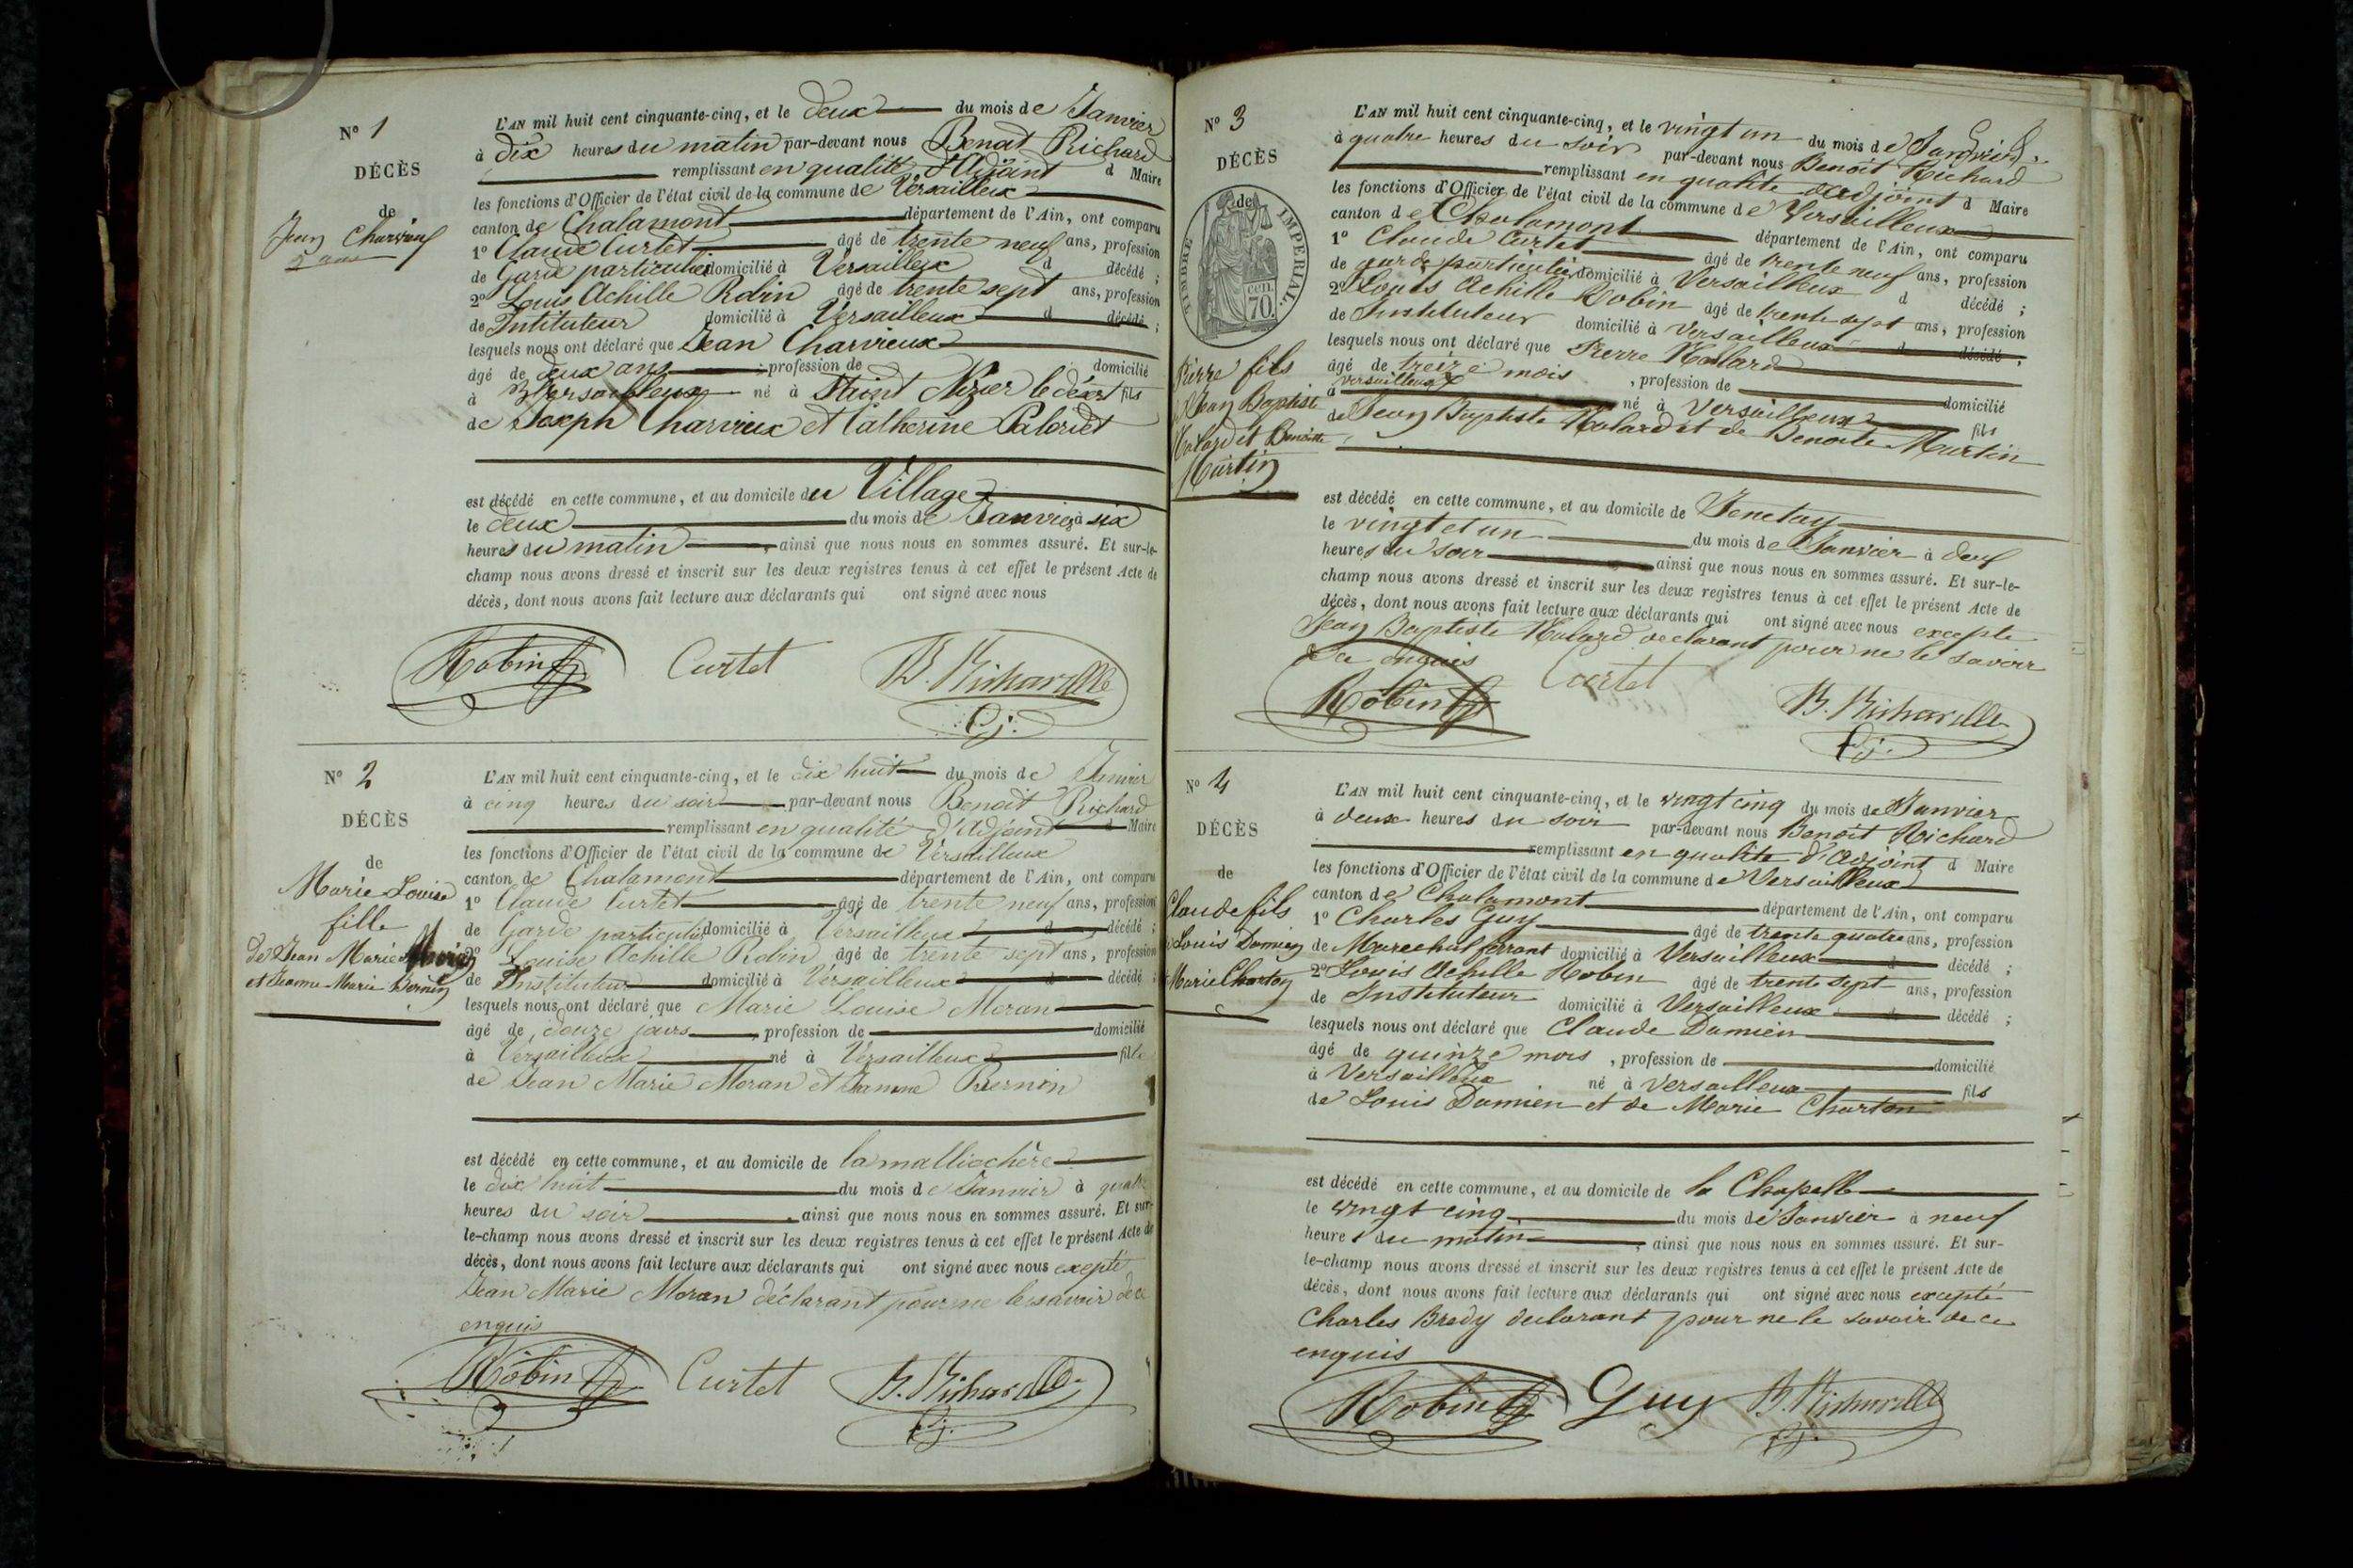 N° 1
DÉCÈS
de
Jean Charvieux
2 ans
L'AN mil huit cent cinquante-cinq, et le deux du mois de Janvier
à dix heures du matin par-devant nous Benoit Richard
remplissant en qualité d'Adjoint d Maire
les fonctions d'Officier de l'état civil de la commune de Versailleux
canton de Chalamont département de l'Ain, ont comparu
1° Claude Curtet âgé de trente neuf ans, profession
de Garde particulier domicilié à Versailleux d décédé ;
2° Louis Achille Robin âgé de trente sept ans, profession
de Intituteur domicilié à Versailleux d décédé ;
lesquels nous ont déclaré que Jean Charvieux
âgé de deux ans profession de domicilié
à Versailleux né à Saint Nizier le désert fils
de Joseph Charvieux et Catherine
est décédé en cette commune, et au domicile du Village
le deux du mois de Janvier à six
heures du matin, ainsi que nous nous en sommes assuré. Et sur-le-
champ nous avons dressé et inscrit sur les deux registres tenus à cet effet le présent Acte de
décès, dont nous avons fait lecture aux déclarants qui ont signé avec nous
Robin Curtet B. Richard
N° 2
DÉCÈS
de
Marie Louise
fille
de Jean Marie
et Jeanne Marie Bernin
L'AN mil huit cent cinquante-cinq, et le dix huit du mois de Janvier
à cinq heures du soir par-devant nous Benoit Richard
remplissant en qualité d'Adjoint d Maire
les fonctions d'Officier de l'état civil de la commune de Versailleux
canton de Chalamont département de l'Ain, ont comparu
1° Claude Curtet âgé de trente neuf ans, profession
de Garde particulier domicilié à Versailleux d décédé ;
2° Louise Achille Robin âgé de trente sept ans, profession
de Instituteur domicilié à Versailleux d décédé ;
lesquels nous ont déclaré que Marie Louise Moran
âgé de douze jours, profession de domicilié
à Versailleux né à Versailleux fille
de Jean Marie Moran et Jeanne Bernin
est décédé en cette commune, et au domicile de la malliochère
le dix huit du mois de Janvier à quatre
heures du soir, ainsi que nous nous en sommes assuré. Et sur-
le-champ nous avons dressé et inscrit sur les deux registres tenus à cet effet le présent Acte de
décès, dont nous avons fait lecture aux déclarants qui ont signé avec nous excepté
Jean Marie Moran déclarant pour ne le savoir de ce
enquis
Robin Curtet B. Richard
N° 3
DÉCÈS
de
TIMBRE IMPERIAL.
70 cen.
Pierre fils
Jean Baptiste
Molard et Benoitte
Martin
L'AN mil huit cent cinquante-cinq, et le vingt un du mois de Janvier
à quatre heures du soir par-devant nous Benoit Richard
remplissant en qualité d'adjoint d Maire
les fonctions d'Officier de l'état civil de la commune de Versailleux
canton de Chalamont département de l'Ain, ont comparu
1° Claude Curtet âgé de trente neuf ans, profession
de garde particulier domicilié à Versailleux d décédé ;
2° Louis Achille Robin âgé de trente sept ans, profession
de Instituteur domicilié à Versailleux d décédé ;
lesquels nous ont déclaré que Pierre Molard
âgé de treize mois, profession de domicilié
à Versailleux né à Versailleux fils
de Jean Baptiste Molard et de Benoite Martin
est décédé en cette commune, et au domicile de
le vingt et un du mois de Janvier à deux
heures du soir ainsi que nous nous en sommes assuré. Et sur-le-
champ nous avons dressé et inscrit sur les deux registres tenus à cet effet le présent Acte de
décès, dont nous avons fait lecture aux déclarants qui ont signé avec nous excepte
Jean Baptiste Molard declarant pour ne le savoir
de ce enquis
Robin Curtet B. Richard
N° 4
DÉCÈS
de
Claude fils
Louis Damien
Marie Charton
L'AN mil huit cent cinquante-cinq, et le vingt cinq du mois de Janvier
à deux heures du soir par-devant nous Benoit Richard
remplissant en qualite d'adjoint d Maire
les fonctions d'Officier de l'état civil de la commune de Versailleux
canton de Chalamont département de l'Ain, ont comparu
1° Charles Guy âgé de trente quatre ans, profession
de Marechal ferrant domicilié à Versailleux d décédé ;
2° Louis Achille Robin âgé de trente sept ans, profession
de Instituteur domicilié à Versailleux d décédé ;
lesquels nous ont déclaré que Claude Damien
âgé de quinze mois, profession de domicilié
à Versailleux né à Versailleux fils
de Louis Damien et de Marie Charton
est décédé en cette commune, et au domicile de la Chapelle
le vingt cinq du mois de Janvier à neuf
heures du matin, ainsi que nous nous en sommes assuré. Et sur-
le-champ nous avons dressé et inscrit sur les deux registres tenus à cet effet le présent Acte de
décès, dont nous avons fait lecture aux déclarants qui ont signé avec nous excepté
Charles Bredy declarant pour ne le savoir de ce
enquis
Robin Guy B. Richard